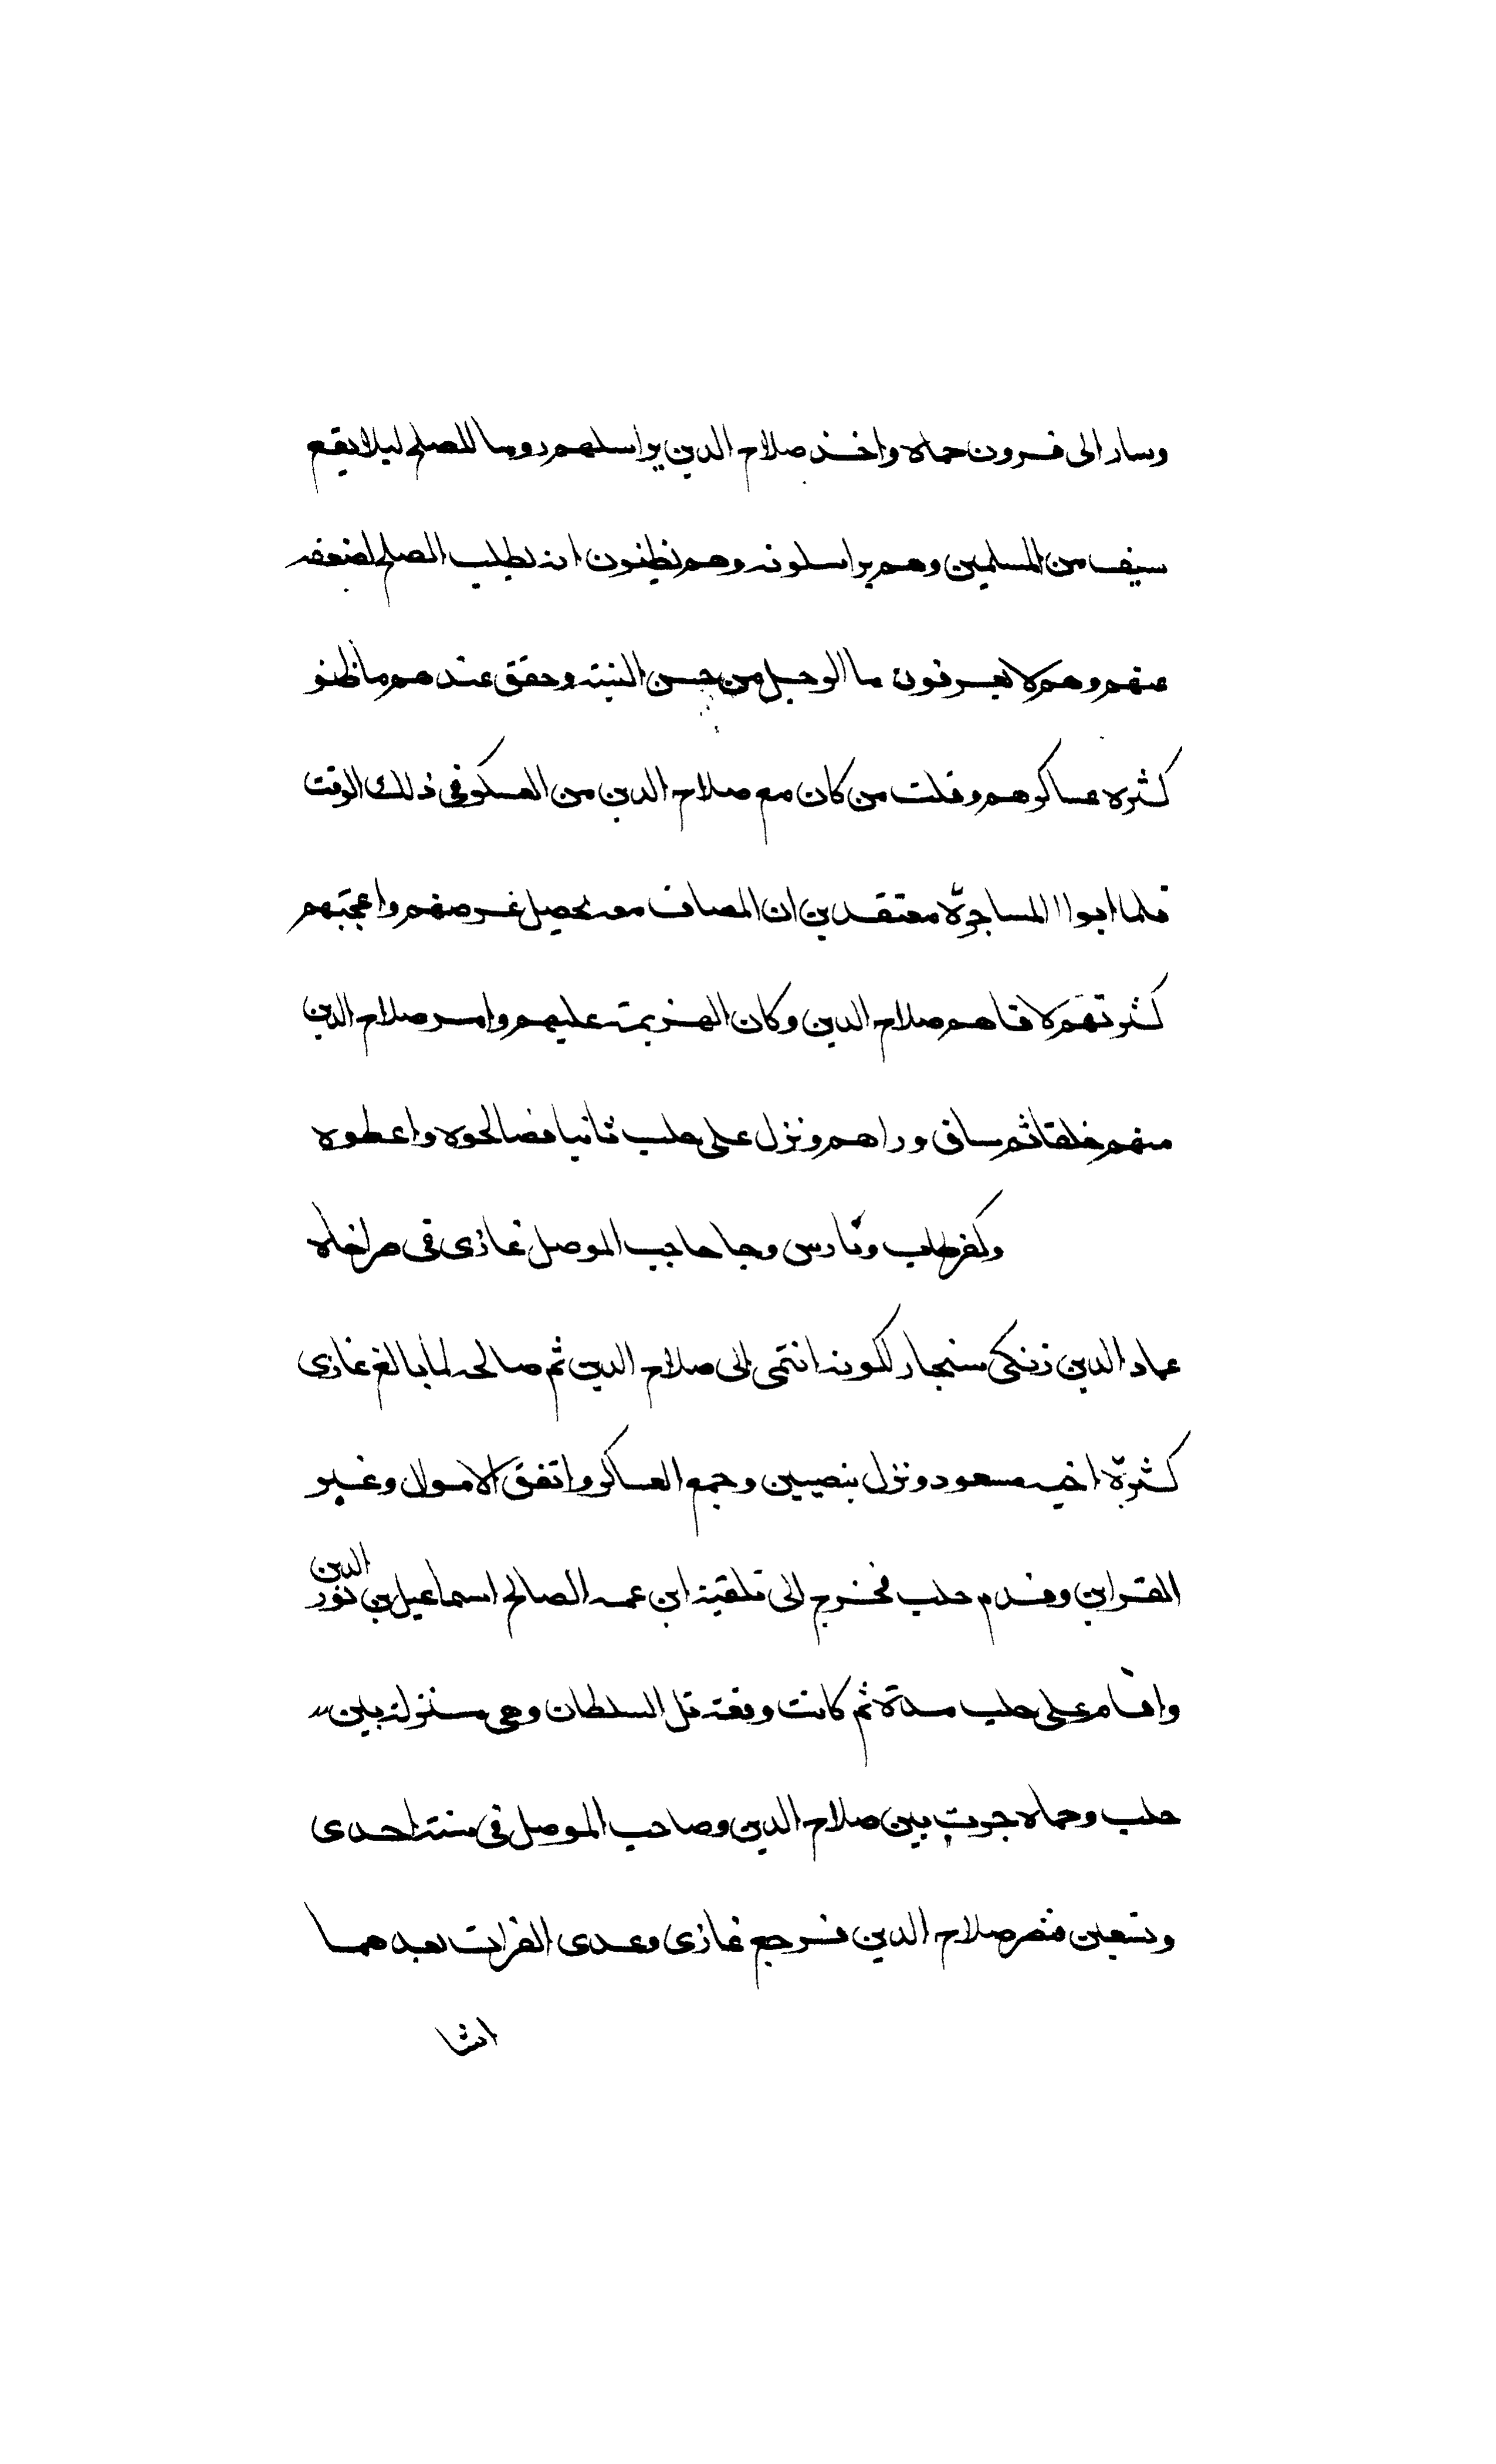 وسار الى قرون حماه واخذ صلاح الدين يراسلهم روما للصلح ليلا يقع
سيف من المسلمين وهم يراسلونه وهم يظنون انه يطلب الصلح لضعفه
عنهم وهم لا يعرفون ما الرجل من حسن النيته وحقق عندهم ما ظنو
كثره عساكرهم وقلت من كان مع صلاح الدين من العسكر فى ذلك الوقت
فلما ابوا المساجرة معتقدين ان المصاف معه يحصل غرضهم واعجبتهم
كثرتهم لاقاهم صلاح الدين وكان الهزيمة عليهم وامسر صلاح الدين
منهم خلقا ثم ساق وراهم ونزل على حلب ثانيا فصالحوه واعطوه
وكفرطاب وبارس وجا حاجب الموصل غازى فى مراخاه
عماد الدين زنكى سنجار لكونه انتمى الى صلاح الدين ثم صالحه لما بالغ غازى
كثرة اخيه مسعود ونزل بنصيبين وجمع العساكر واتفق الاموال وغير
القراين وقدم حلب فخرج الى تلقيه ابن عمه الصالح اسماعيل بن نور الدين
واقام على حلب مدة ثم كانت وقعة تل السلطان وهى منزلة بين
حلب وحماه جرت بين صلاح الدين وصاحب الموصل فى سنة احدى
وتسعين فنصر صلاح الدين فرجع غازى وعدى الفرات بعدهما
انشا